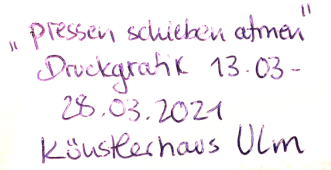 "pressen schieben atmen"
Druckgrafik 13.03-
28.03.2021
Künstlerhaus Ulm